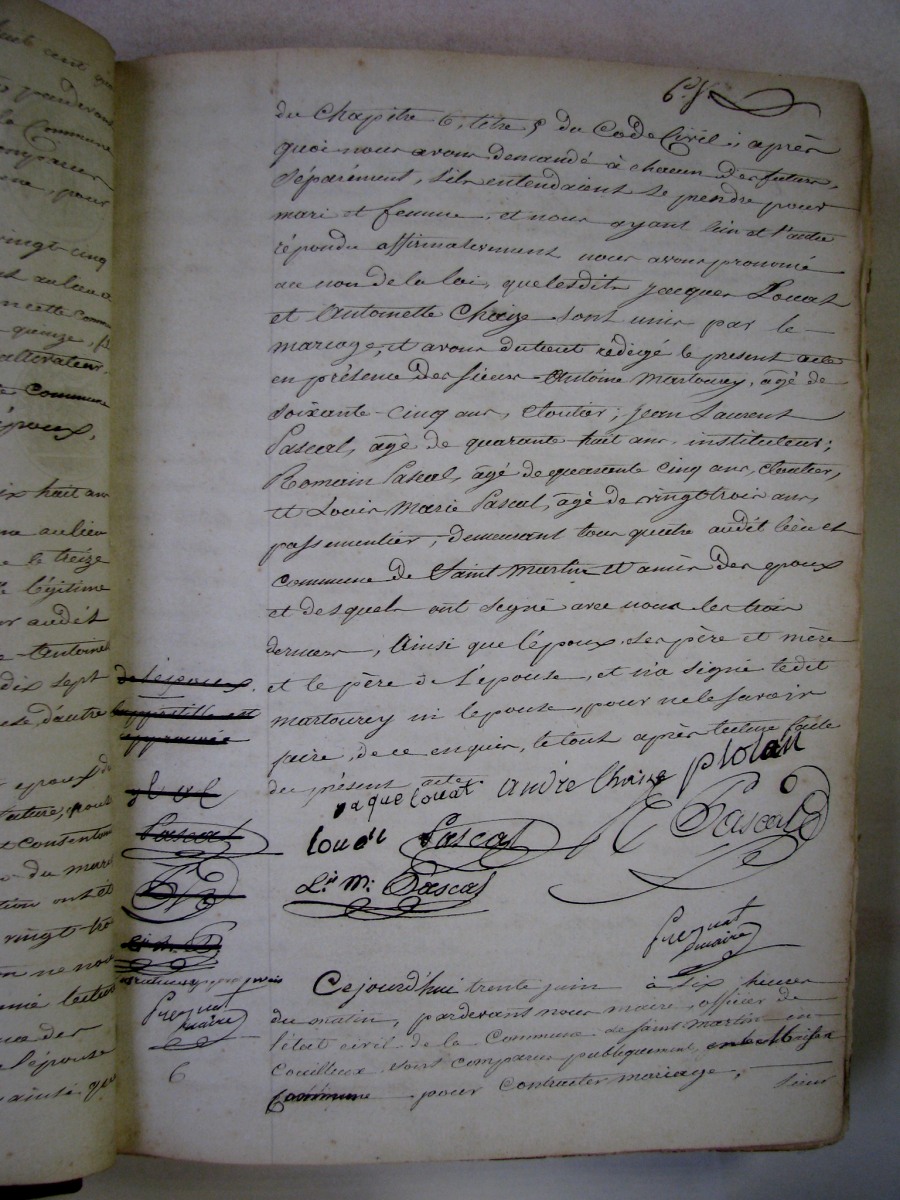 du Chapitre 6, titre 5 du Code Civil; après
quoi nous avons demandé à chacun des futurs,
séparément, s'ils entendaient se prendre pour
mari et femme, et nous ayant l'un et l'autre
répondu affirmativement nous avons prononcé
au nom de la loi, que lesdits Jacques Louat
et Antoinette Chaize sont unis par le
mariage, et avons du tout rédigé le présent acte
en présence des sieurs Antoine Martourey, âgé de
soixante-cinq ans, cloutier; Jean Laurent
Pascal, âgé de quarante huit ans, instituteur;
Romain Pascal, âgé de quarante cinq ans, cloutier,
et Louis Marie Pascal, âgé de vingt trois ans,
passementier, demeurant tous quatre audit lieu et
commune de Saint Martin et amis des époux
et desquels ont signé avec nous les trois
derniers, ainsi que l'époux, ses père et mère
et le père de l'épouse, et n'a signé ledit
martourey ni l'epouse, pour ne le savoir
faire, de ce enquis, le tout après lecture faite
du présent acte.
jaque louat andré Chaize plouat
louat Pascal R Pascal
Ls M: Pascal
maire
Cejourd'hui trente juin à six heures
du matin, pardevant nous maire, officier de
l'état civil de la Commune de Saint Martin en
Coailleux, sont comparus publiquement, en la Maison
Commune pour contracter mariage, sieur
de l'épouse
approuvée
Pascal
maire
6
vingt cinq
quinze,
cultivateur
Commune
époux,
dix huit ans
le treize
légitime
audit
dix sept
d'autre
epoux
vingt trois
lecture
l'épouse
ainsi que